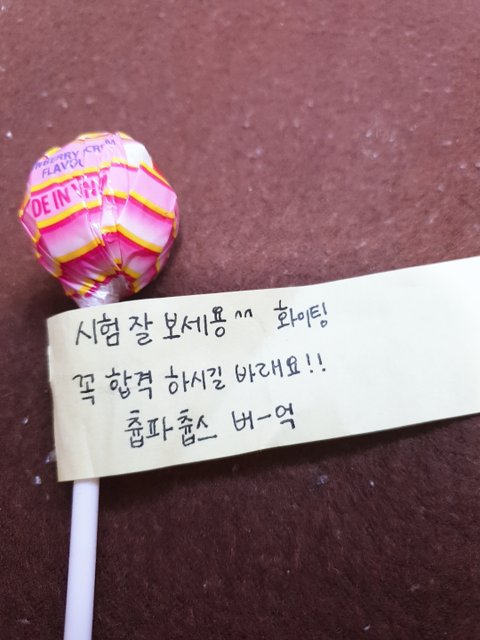 BERRY CREAM
FLAVOU
DE IN VN
시험 잘 보세용^^ 화이팅
꼭 합격 하시길 바래요!!
츕파츕스 버-억